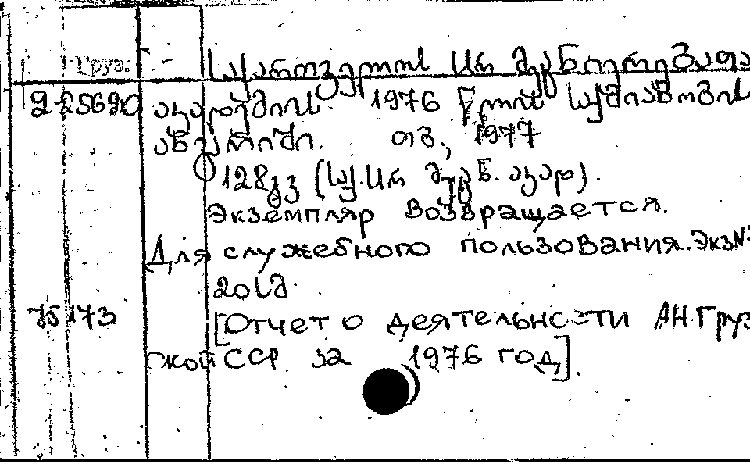 Груз. საქართველოს სსრ მეცნიერებათა
2-25690 აკადემიის 1976 წლის საქმიანობის
ანგარიში. თბ., 1977
128გვ (საქ.სსრ მეცნ. აკად).
Экземпляр возвращается.
Для служебного пользования. Экз№
20სმ
75173 [Отчет о деятельности АН Груз
ской ССР за 1976 год].